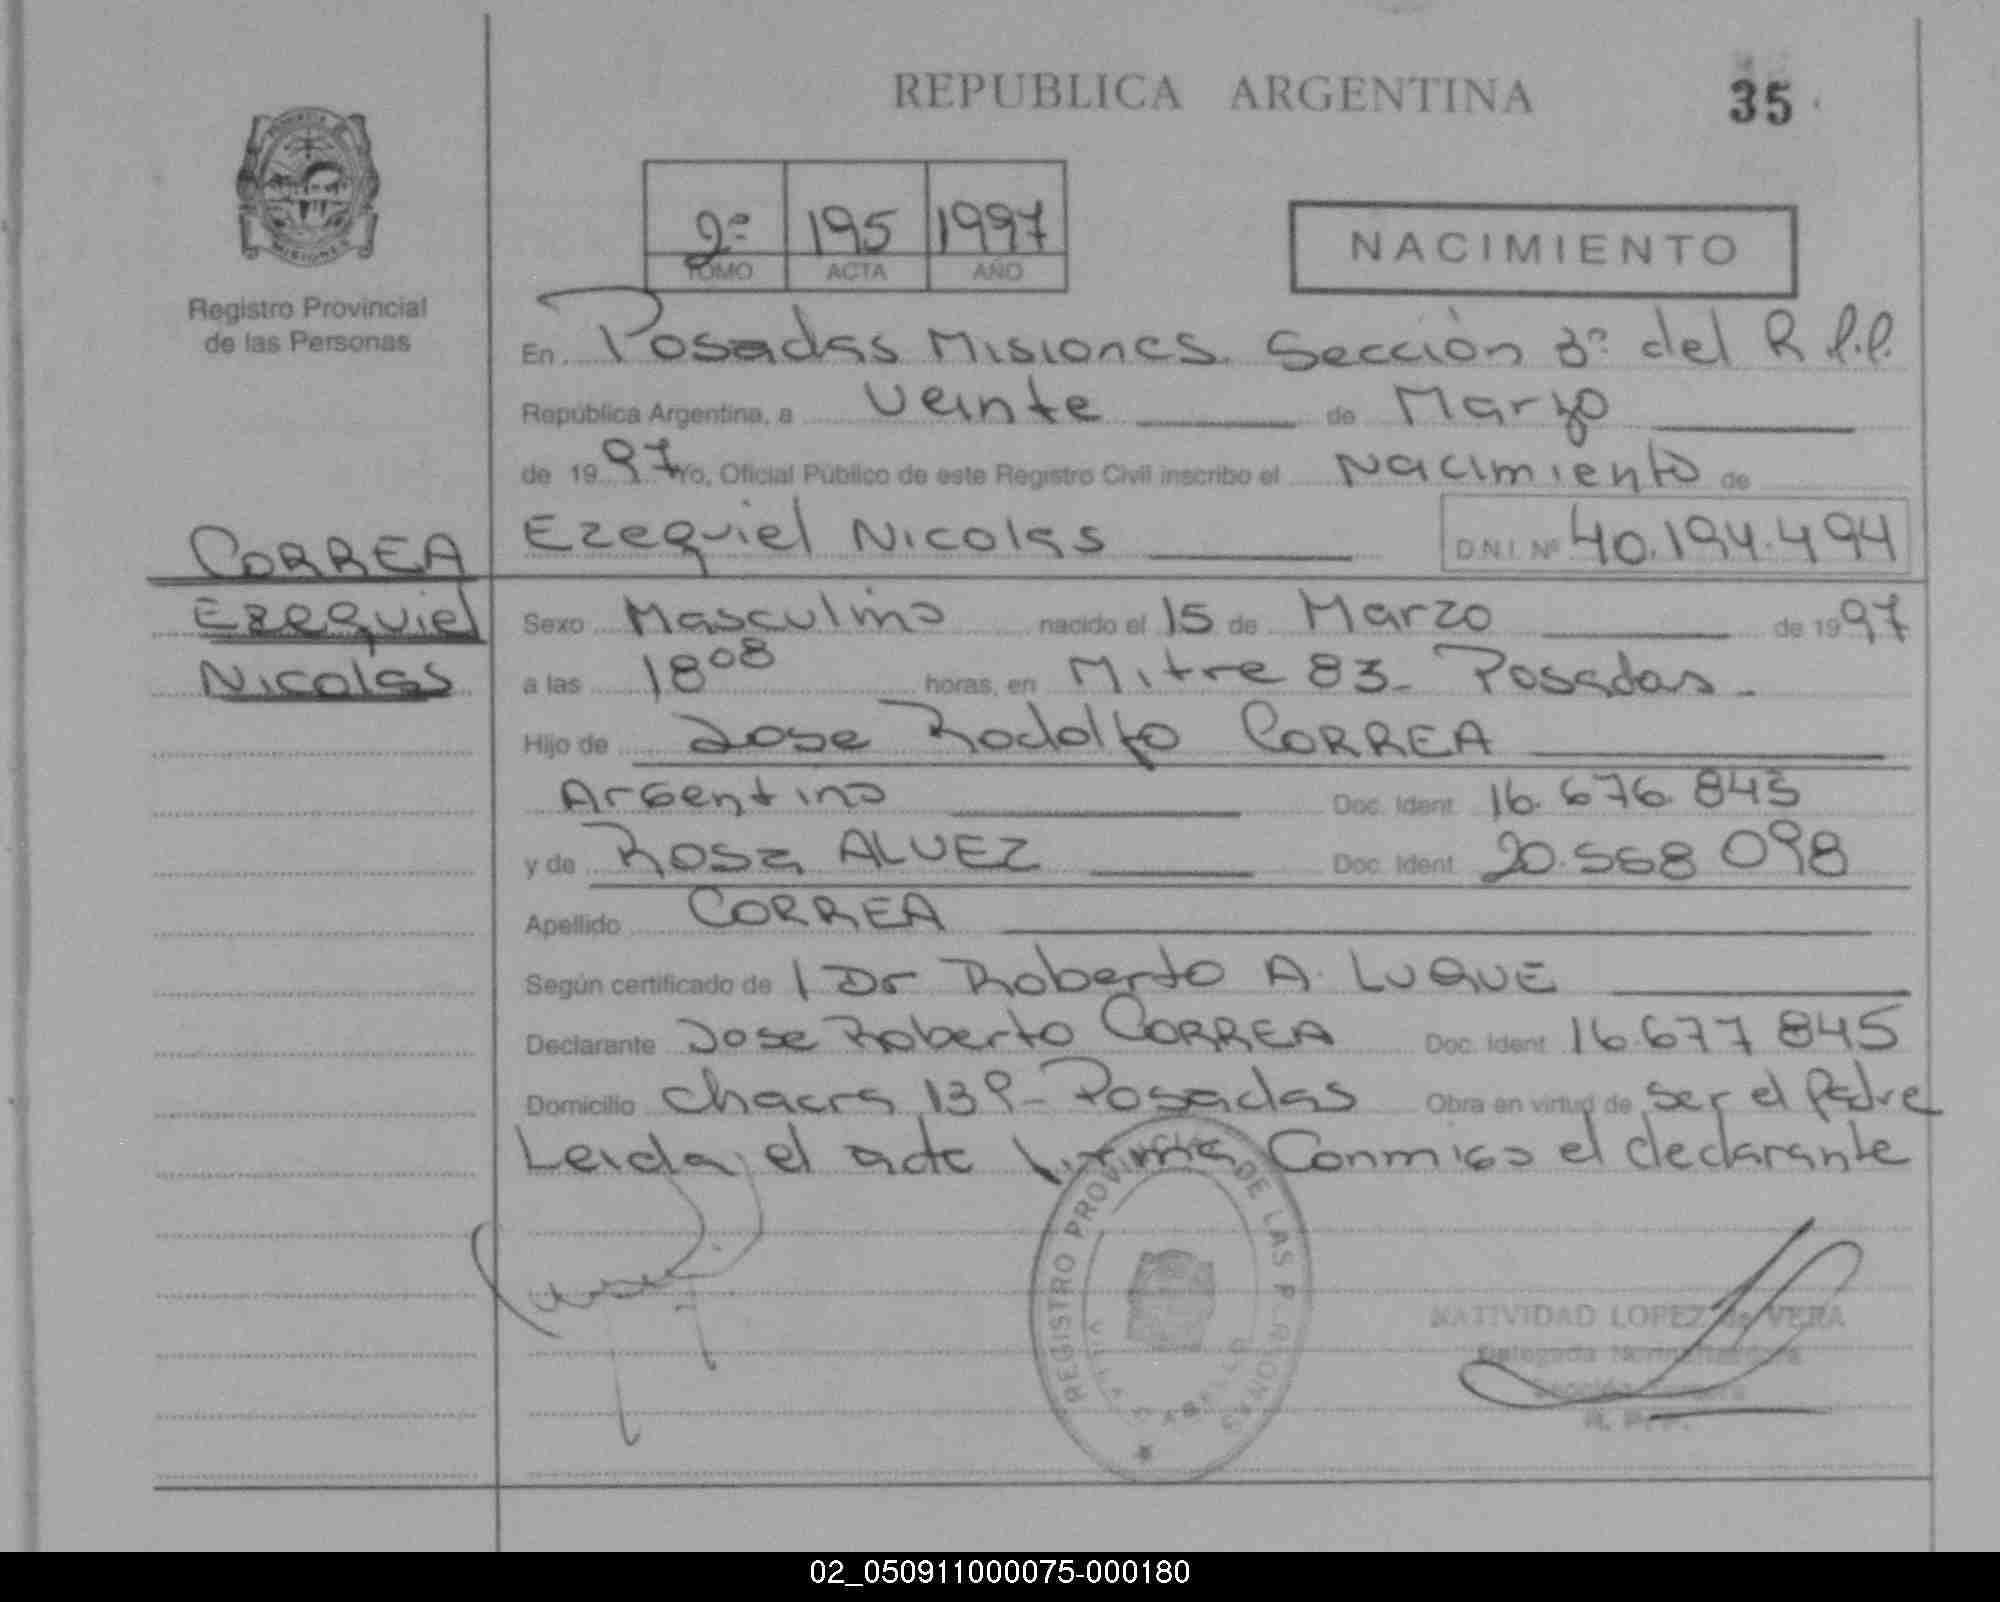 REPUBLICA ARGENTINA
35
PROVINCIA DE
MISIONES
Registro Provincial
de las Personas
2ª 195 1997
TOMO ACTA AÑO
NACIMIENTO
En Posadas Misiones. Sección 3ª del R.P.P.
República Argentina, a veinte de Marzo
de 1997 Yo, Oficial Público de este Registro Civil inscribo el Nacimiento de
CORREA Ezequiel Nicolas D.N.I. Nº 40.194.494
Ezequiel Sexo Masculino nacido el 15 de Marzo de 1997
Nicolas a las 18 08 horas, en Mitre 83- Posadas-
Hijo de Jose Rodolfo CORREA
Argentino Doc. Ident. 16.676.843
y de Rosa ALVEZ Doc. Ident. 20.568 098
Apellido CORREA
Según certificado de l Dr Roberto A. LUQUE
Declarante Jose Roberto CORREA Doc. Ident. 16.677 845
Domicilio Chacra 139- Posadas Obra en virtud de ser el Padre
Leida el acta firma Conmigo el declarante
REGISTRO PROVINCIAL DE LAS PERSONAS
VILLA
NATIVIDAD LOPEZ de VERA
Delegada
R. P. P.
02_050911000075-000180